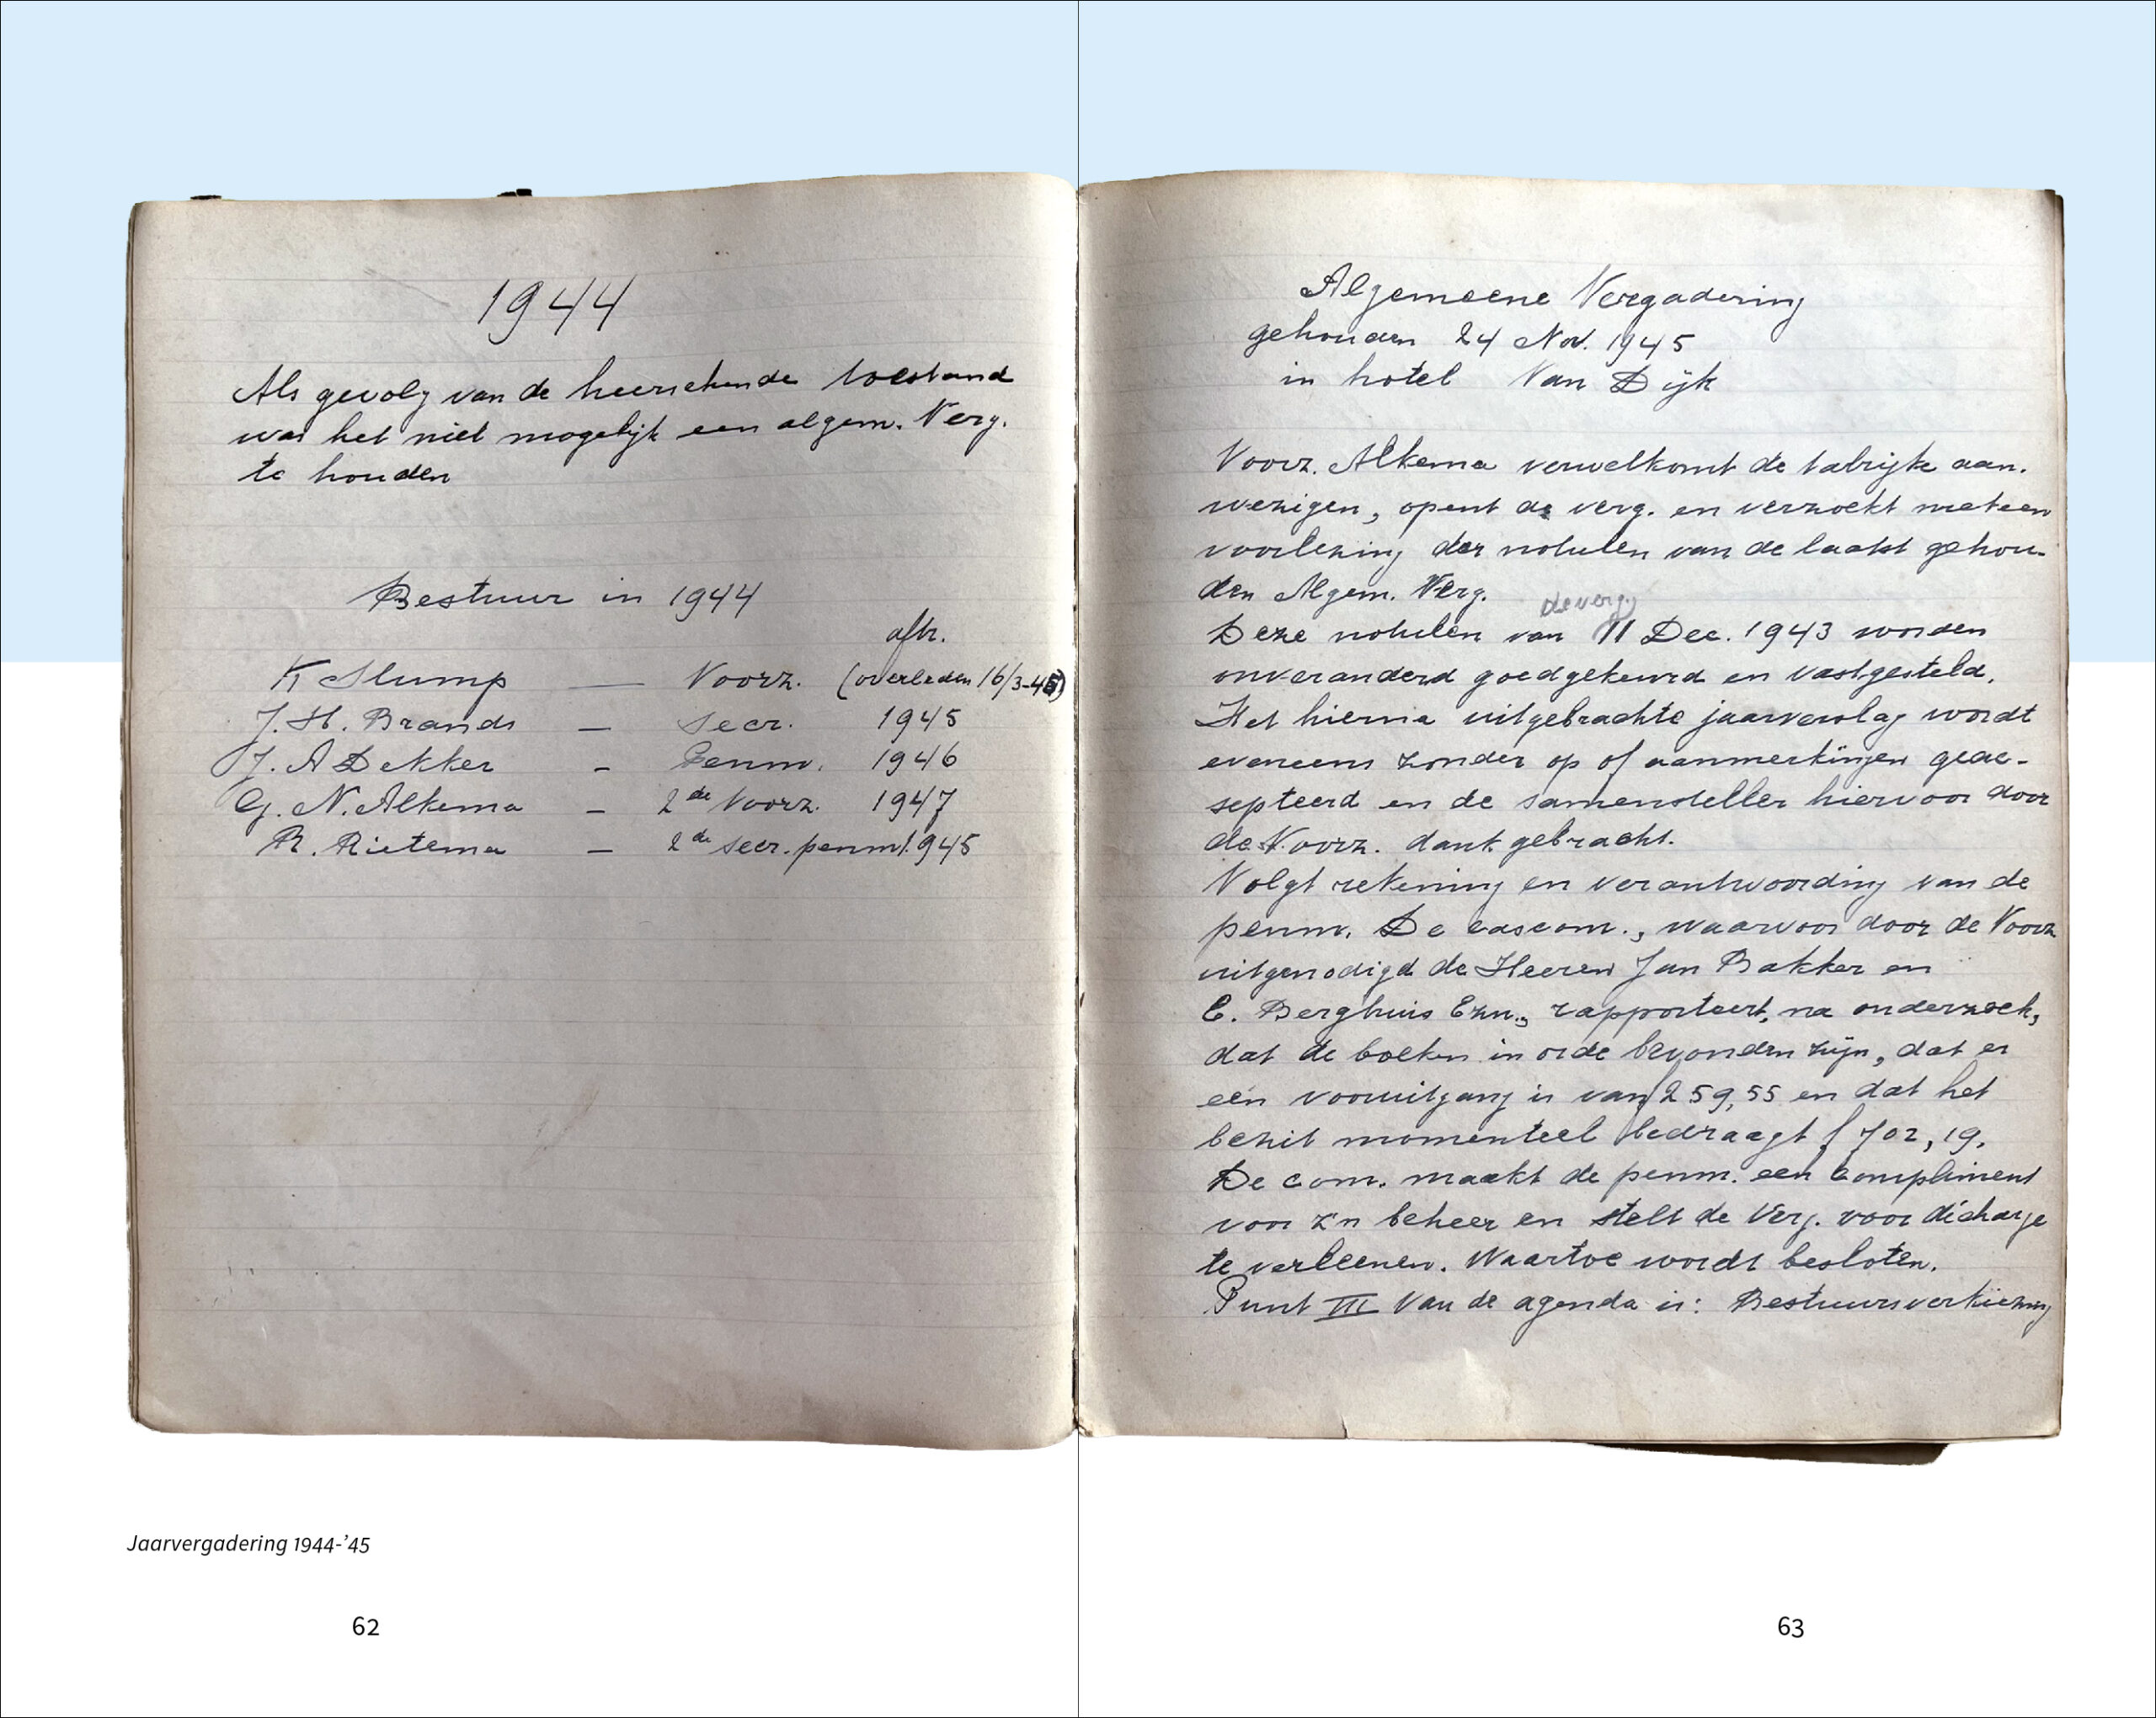 1944
Als gevolg van de heerschende toestand
was het niet mogelijk een algem. Verg.
te houden
Bestuur in 1944
aftr.
K Slump — Voorz. (overleden 16/3-45)
J. H. Brands — Secr. 1945
J. A Dekker - Penm. 1946
G. N. Alkema - 2de Voorz. 1947
R. Rietema — 2de secr. penm. 1945
Jaarvergadering 1944-’45
62
Algemeene Vergadering
gehouden 24 Nov. 1945
in hotel Van Dijk
Voorz. Alkema verwelkomt de talrijke aan-
wezigen, opent de verg. en verzoekt meteen
voorlezing der notulen van de laatst gehou-
den Algem. Verg.
de verg.
Deze notulen van 11 Dec. 1943 worden
onveranderd goedgekeurd en vastgesteld.
Het hierna uitgebrachte jaarverslag wordt
eveneens zonder op of aanmerkingen geac-
septeerd en de samensteller hiervoor door
de Voorz. dank gebracht.
Volgt rekening en verantwoording van de
penm. De cascom., waarvoor door de Voorz
uitgenodigd de Heeren Jan Bakker en
E. Berghuis Ezn., rapporteert, na onderzoek,
dat de boeken in orde bevonden zijn, dat er
een vooruitgang is van f 259,55 en dat het
bezit momenteel bedraagt f 702,19.
De com. maakt de penm. een compliment
voor z'n beheer en stelt de Verg. voor décharge
te verleenen. Waartoe wordt besloten.
Punt III van de agenda is: Bestuursverkiezing
63